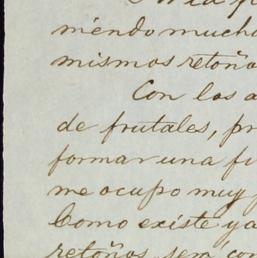 miendo mucho
mismos retoño
Con los a
de frutales, pr
formar una fi
me ocupo muy
Como existe ya
retoños, será con